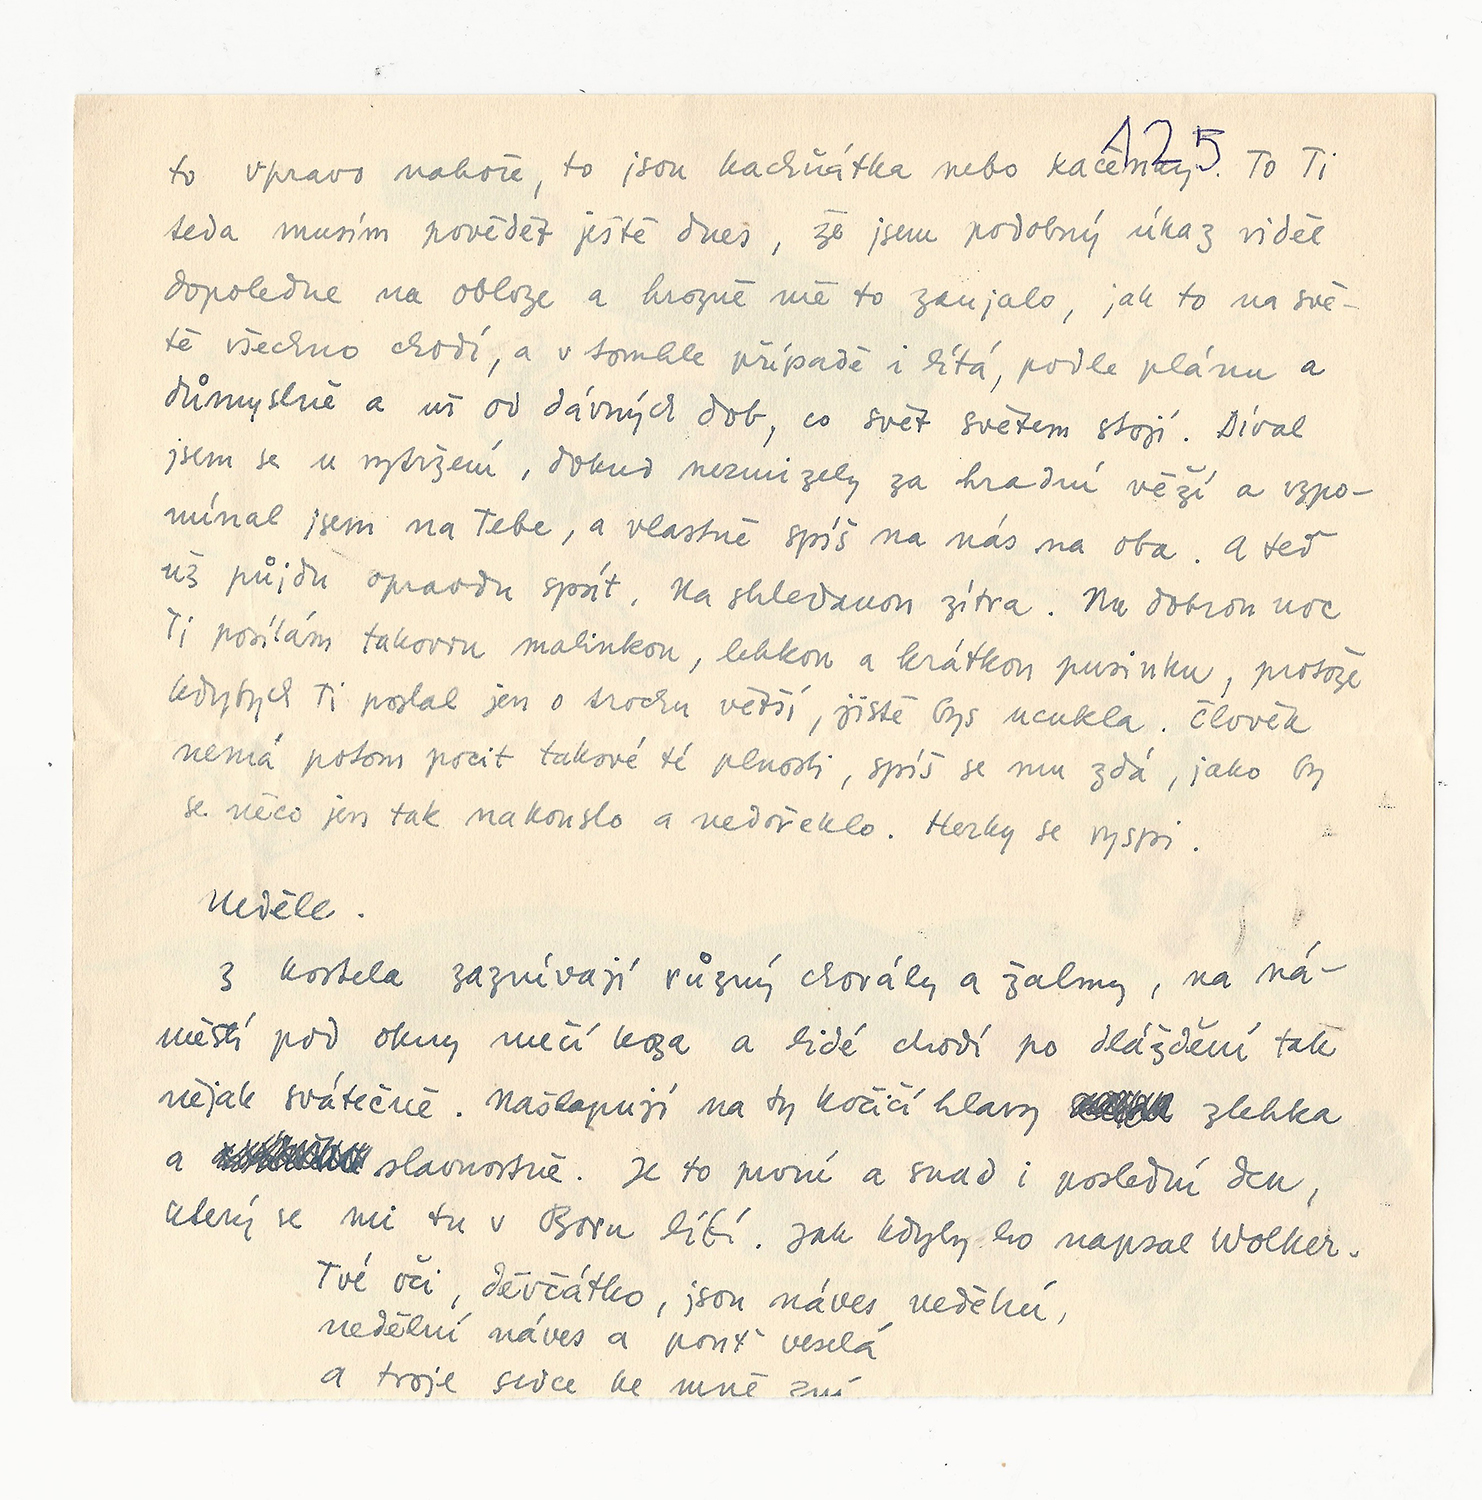 125
to vpravo nahoře, to jsou kachňátka nebo kačenky. To Ti
teda musím povědět ještě dnes, že jsem podobný úkaz viděl
dopoledne na obloze a hrozně mě to zaujalo, jak to na svě-
tě všechno chodí, a v tomhle případě i lítá, podle plánu a
důmyslně a už od dávných dob, co svět světem stojí. Díval
jsem se u vytržení, dokud nezmizely za hradní věží a vzpo-
mínal jsem na Tebe, a vlastně spíš na nás na oba. A teď
už půjdu opravdu spát. Na shledanou zítra. Na dobrou noc
Ti posílám takovou malinkou, lehkou a krátkou pusinku, protože
kdybych Ti poslal jen o trochu větší, jistě bys ucukla. Člověk
nemá potom pocit takové té plnosti, spíš se mu zdá, jako by
se něco jen tak nakouslo a nedořeklo. Hezky se vyspi.
Neděle.
Z kostela zaznívají různý chorály a žalmy, na ná-
městí pod okny mečí koza a lidé chodí po dláždění tak
nějak svátečně. Našlapují na ty kočičí hlavy zlehka
a slavnostně. Je to první a snad i poslední den,
který se mi tu v Boru líbí. Jak kdyby ho napsal Wolker.
Tvé oči, děvčátko, jsou náves nedělní,
nedělní náves a pouť veselá
a troje srdce ke mně zní